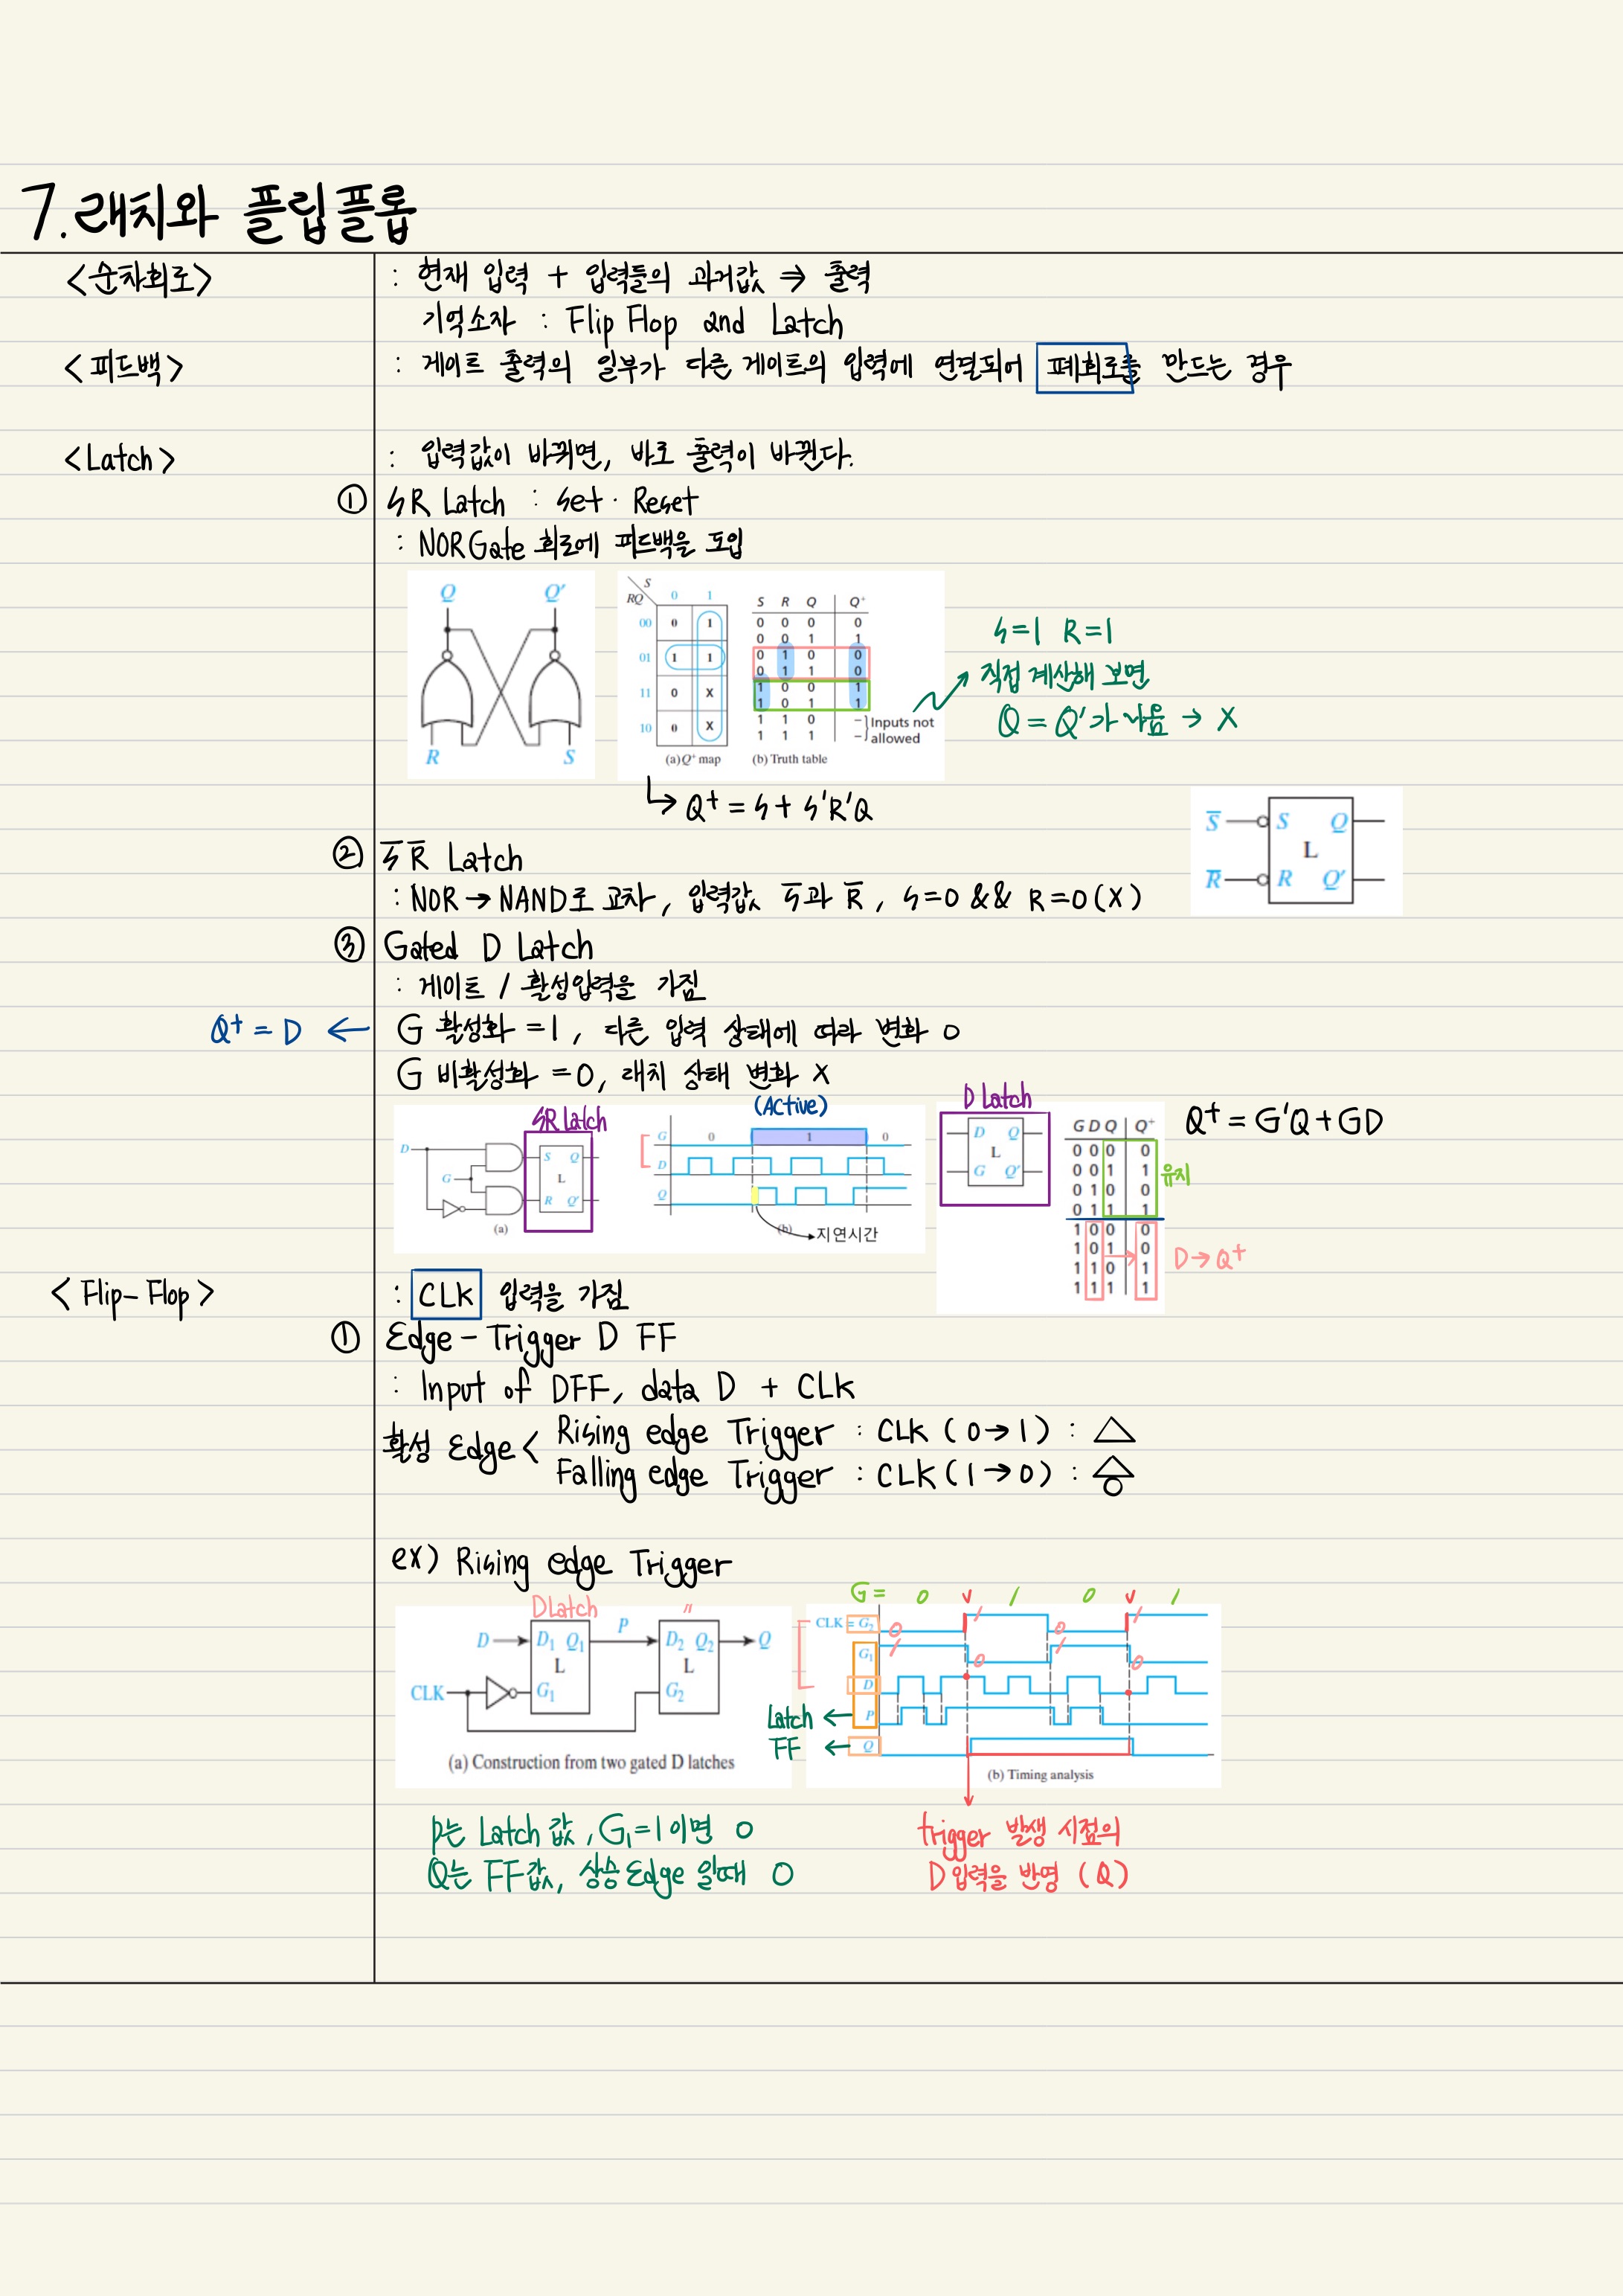 7. 래치와 플립플롭
<순차회로> : 현재 입력 + 입력들의 과거값 ⇒ 출력
기억소자 : Flip Flop and Latch
<피드백> : 게이트 출력의 일부가 다른 게이트의 입력에 연결되어 폐회로를 만드는 경우
<Latch> : 입력값이 바뀌면, 바로 출력이 바뀐다.
① SR Latch : Set · Reset
: NOR Gate 회로에 피드백을 도입
Q Q′
R S
S
RQ 0 1
00 0 1
01 1 1
11 0 X
10 0 X
(a) Q⁺ map
S R Q Q⁺
0 0 0 0
0 0 1 1
0 1 0 0
0 1 1 0
1 0 0 1
1 0 1 1
1 1 0 –
1 1 1 –
Inputs not
allowed
(b) Truth table
S=1 R=1
직접 계산해 보면
Q = Q′가 나옴 → X
↳ Q⁺ = S + S′R′Q
S̅ S Q
L
R̅ R Q′
② S̅ R̅ Latch
: NOR → NAND로 교차, 입력값 S̅과 R̅, S=0 && R=0 (X)
③ Gated D Latch
: 게이트 / 활성입력을 가짐
Q⁺ = D ← G 활성화 = 1, 다른 입력 상태에 따라 변화 O
G 비활성화 = 0, 래치 상태 변화 X
SR Latch
D
G
S Q
L
R Q′
(a)
(Active)
G 0 1 0
D
Q
(b)
지연시간
D Latch
D Q
L
G Q′
G D Q Q⁺
0 0 0 0
0 0 1 1
0 1 0 0
0 1 1 1
1 0 0 0
1 0 1 0
1 1 0 1
1 1 1 1
유지
D → Q⁺
Q⁺ = G′Q + GD
<Flip-Flop> : CLK 입력을 가짐
① Edge - Trigger D FF
: Input of DFF, data D + CLK
활성 Edge < Rising edge Trigger : CLK (0→1) : △
Falling edge Trigger : CLK (1→0) :
ex) Rising edge Trigger
D Latch 〃
D D₁ Q₁ P D₂ Q₂ Q
L L
CLK G₁ G₂
(a) Construction from two gated D latches
G = 0 v 1 0 v 1
CLK = G₂ 0 1 0 1
G₁ 1 0 1 0
D
Latch ← P
FF ← Q
(b) Timing analysis
P는 Latch 값, G₁=1 이면 O
Q는 FF값, 상승 Edge 일때 O
trigger 발생 시점의
D 입력을 반영 (Q)